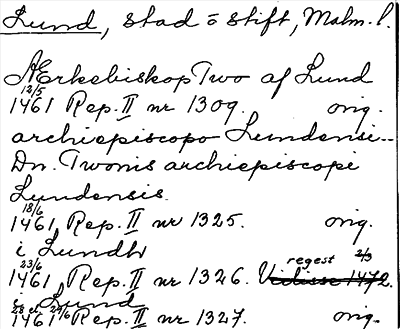 Lund, stad o stift, Malm. l.
Ærkebiskop Two af Lund
12/5
1461 Rep. II nr 1309. orig.
archiepiscopo Lundensi..
Dn. Twonis archiepiscopi
Lundensis.
18/6
1461, Rep. II nr 1325. orig.
i Lundh
23/6 regest 2/3
1461, Rep. II nr 1326. Vidisse 1472.
i Lund
28 el. 29/6
1461 Rep. II nr 1327. orig.